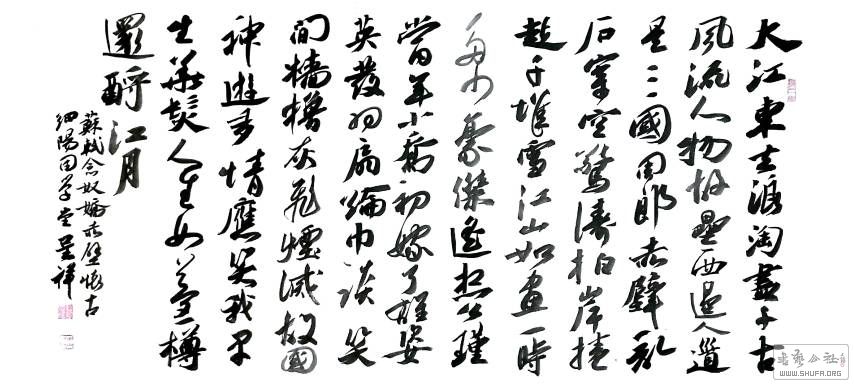 大江東去浪淘盡千古
風流人物故壘西邊人道
是三國周郎赤壁亂
石穿空驚濤拍岸捲
起千堆雪江山如畫一時
多少豪傑遙想公瑾
當年小喬初嫁了雄姿
英發羽扇綸巾談笑
間檣櫓灰飛煙滅故國
神遊多情應笑我早
生華髮人生如夢一樽
還酹江月
蘇軾念奴嬌赤壁懷古
細陽田草堂呈祥
書藝公社
WWW.SHUFA.ORG